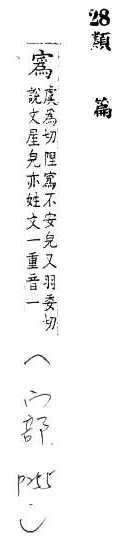 28類篇
寪 虞為切隉寪不安皃又羽委切
說文屋皃亦姓文一重音一
(宀部 p255.)